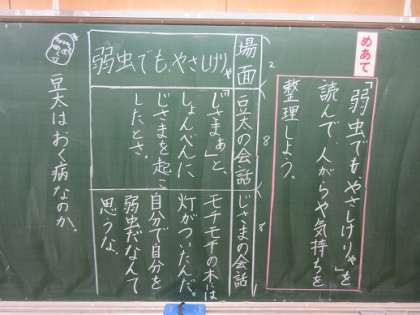 めあて
「弱虫でもやさしけりゃ」を
読んで、人がらや気持ちを
整理しよう。
2
8
場面
豆太の会話
じさまの会話
弱虫でも、やさしけりゃ
「じさまぁ」と、
しょんべんに
じさまを起こ
したとき。
モチモチの木は
灯がついたんだ。
自分で自分を
弱虫だなんて
思うな。
豆太はおく病なのか。